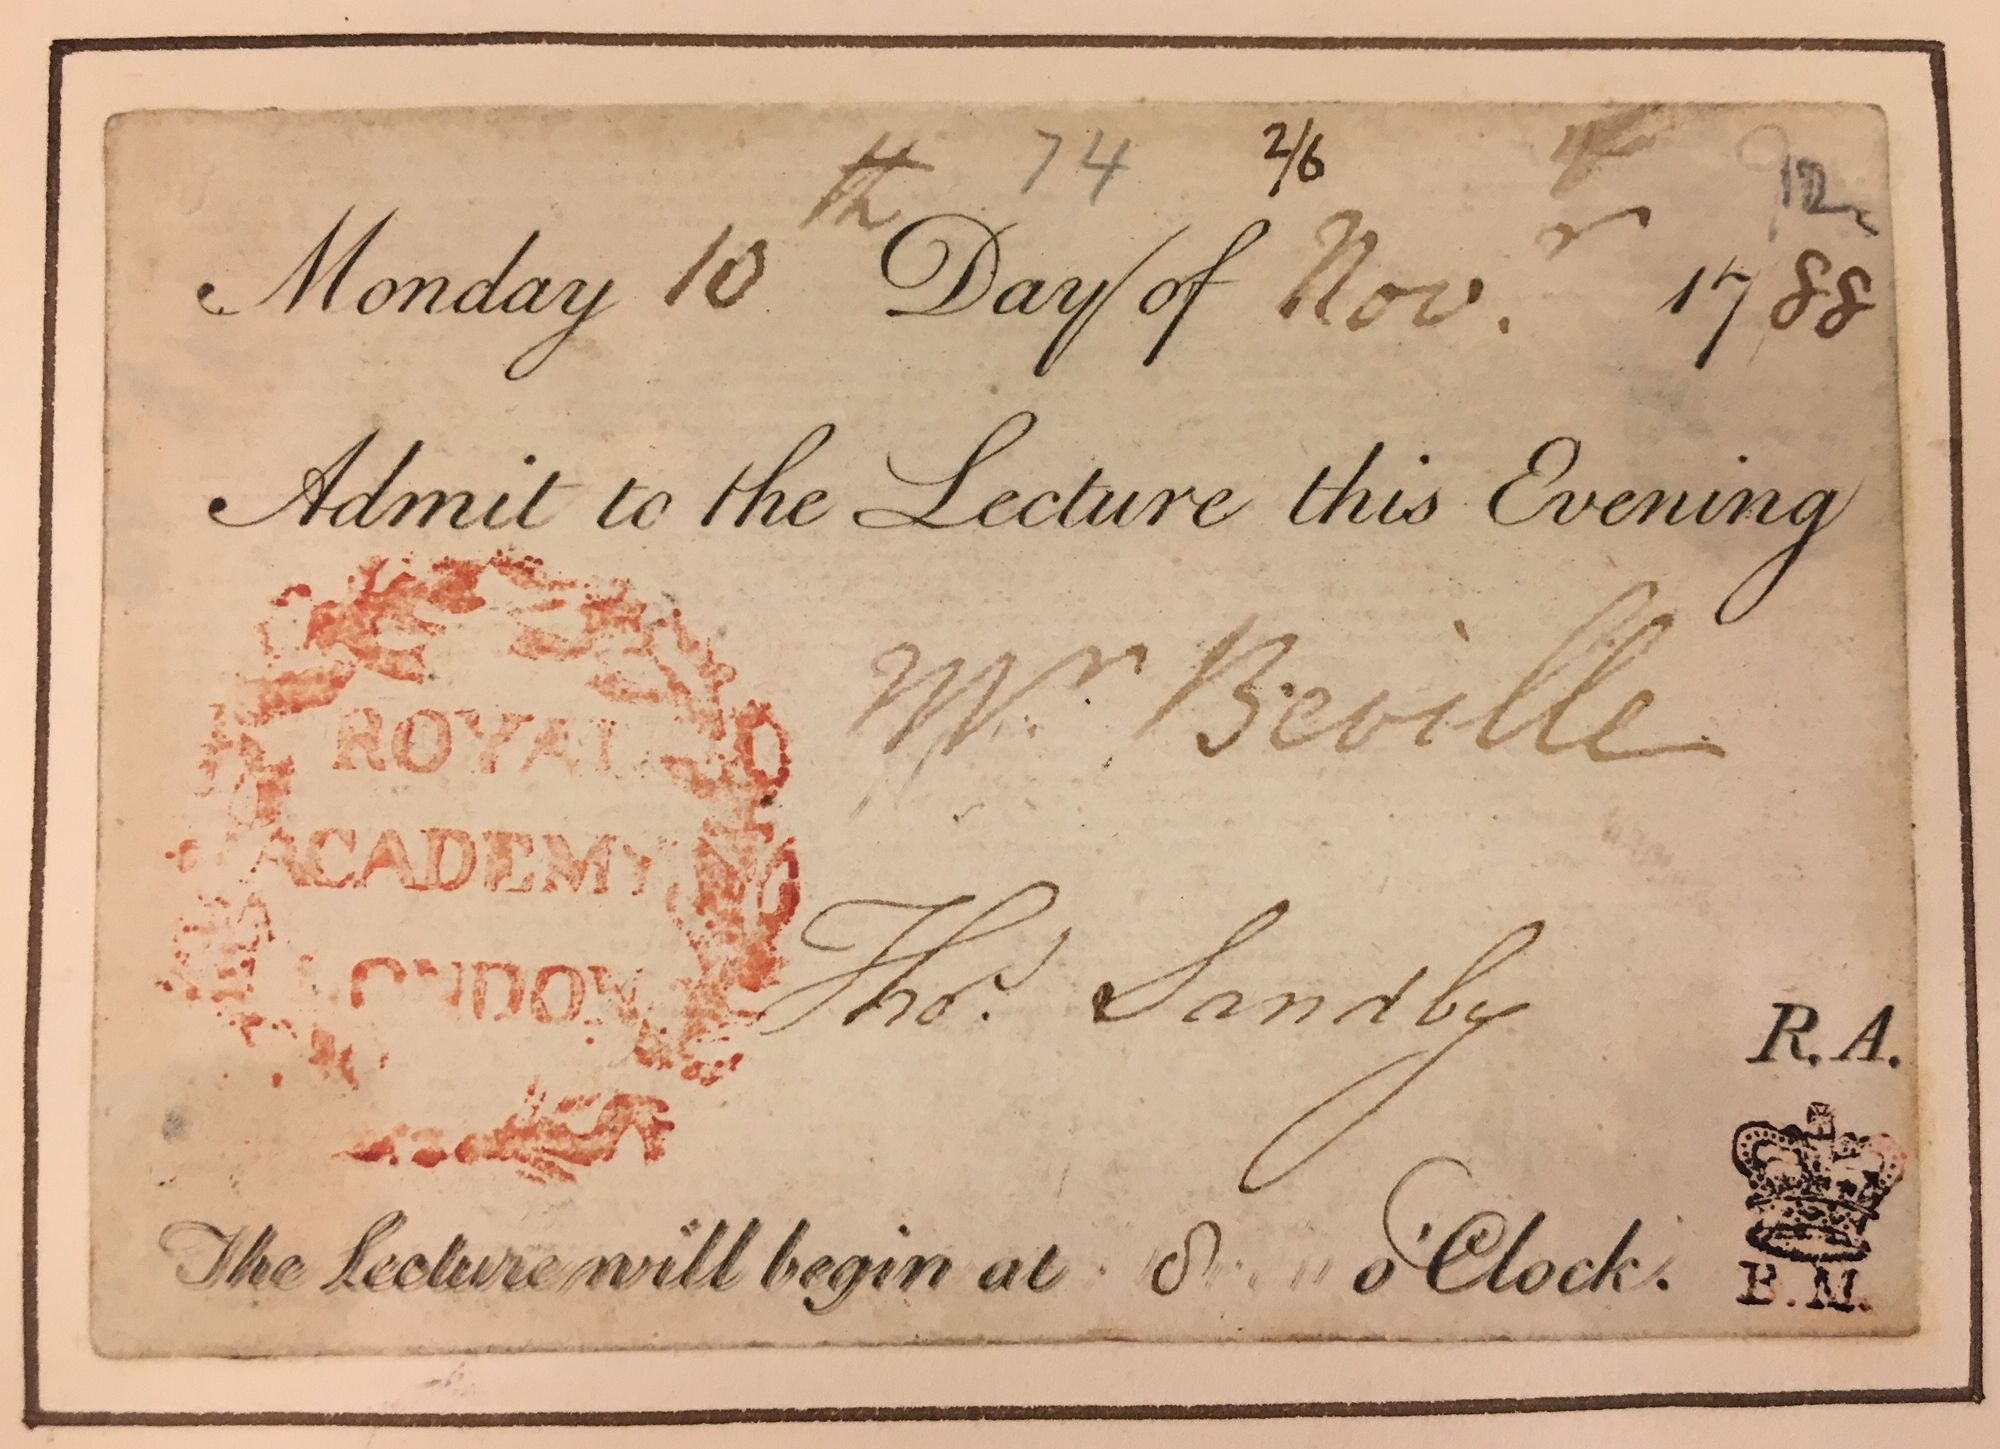 74 2/6
Monday 10th Day of Nov.r 1788
Admit to the Lecture this Evening
Mr. Beville
ROYAL
ACADEMY
LONDON
Thos. Sandby
R.A.
The Lecture will begin at 8 o'Clock.
B.M.